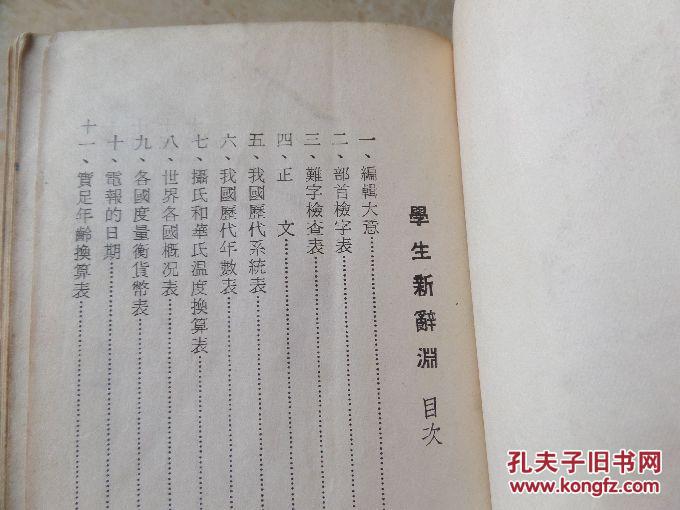 學生新辭淵 目次
一、編輯大意
二、部首檢字表
三、難字檢查表
四、正 文
五、我國歷代系統表
六、我國歷代年數表
七、攝氏和華氏温度換算表
八、世界各國概况表
九、各國度量衡貨幣表
十、電報的日期
十一、實足年齡換算表
孔夫子旧书网
www.kongfz.com